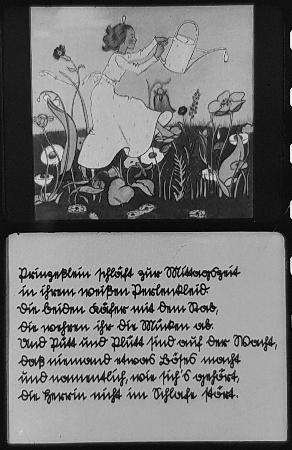 Prinzeßlein schläft zur Mittagszeit
in ihrem weißen Perlenkleid.
Die beiden Käfer mit dem Stab,
die wehren ihr die Mücken ab.
Und Pütt und Plütt sind auf der Wacht,
daß niemand etwas Böses macht
und namentlich, wie sich's gehört,
die Herrin nicht im Schlafe stört.